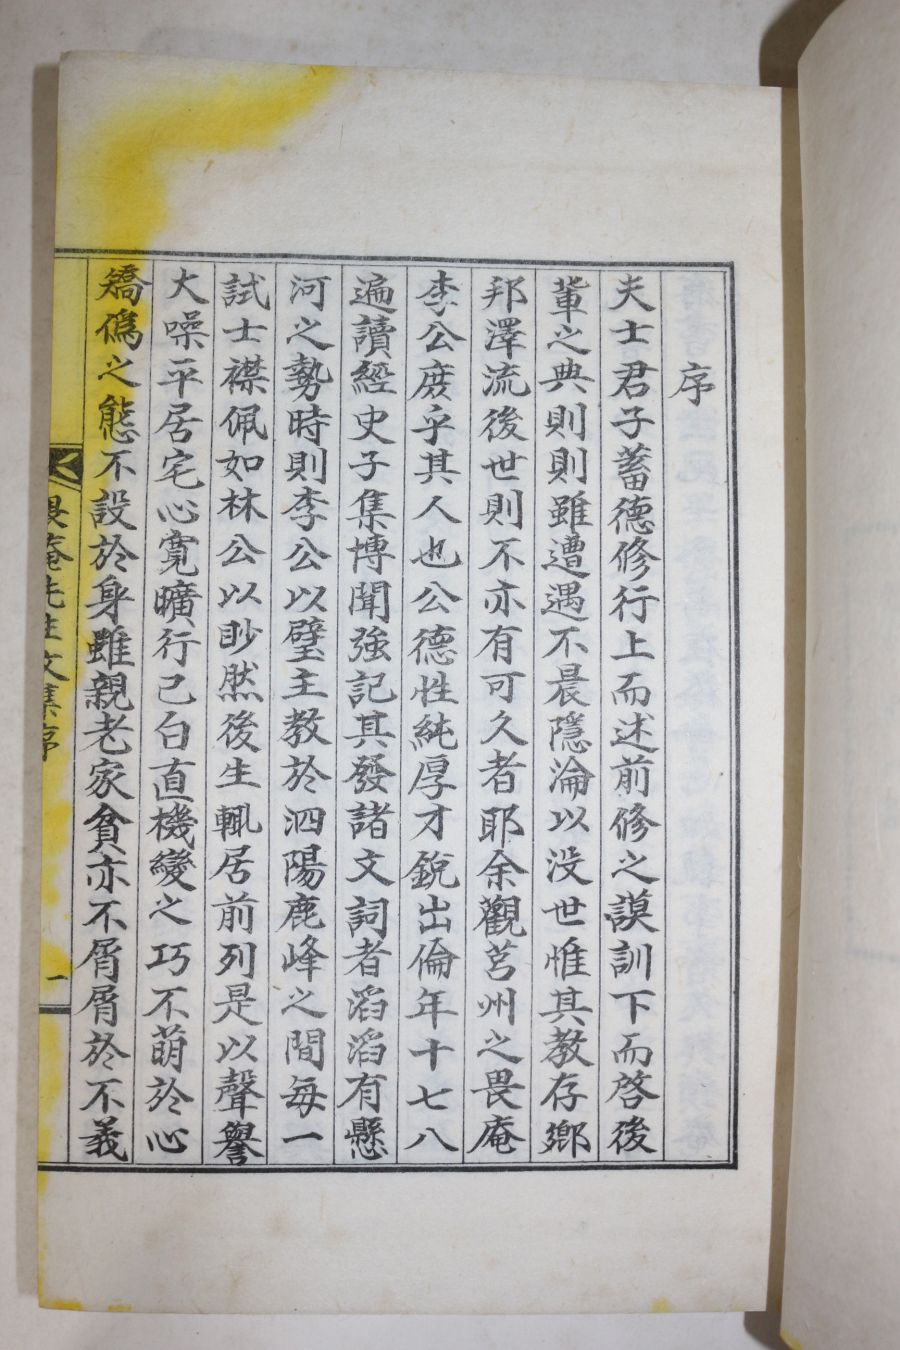 序
夫士君子蓄德修行上而述前修之謨訓下而啓後
輩之典則則雖遭遇不晨隱淪以没世惟其教存鄉
邦澤流後世則不亦有可久者耶余觀莒州之畏庵
李公庶乎其人也公德性純厚才銳出倫年十七八
遍讀經史子集博聞強記其發諸文詞者滔滔有懸
河之勢時則李公以璧主教於泗陽鹿峰之間每一
試士襟佩如林公以眇然後生輒居前列是以聲譽
大噪平居宅心寬曠行己白直機變之巧不萌於心
矯僞之態不設於身雖親老家貧亦不屑屑於不義
畏菴先生文集序
一